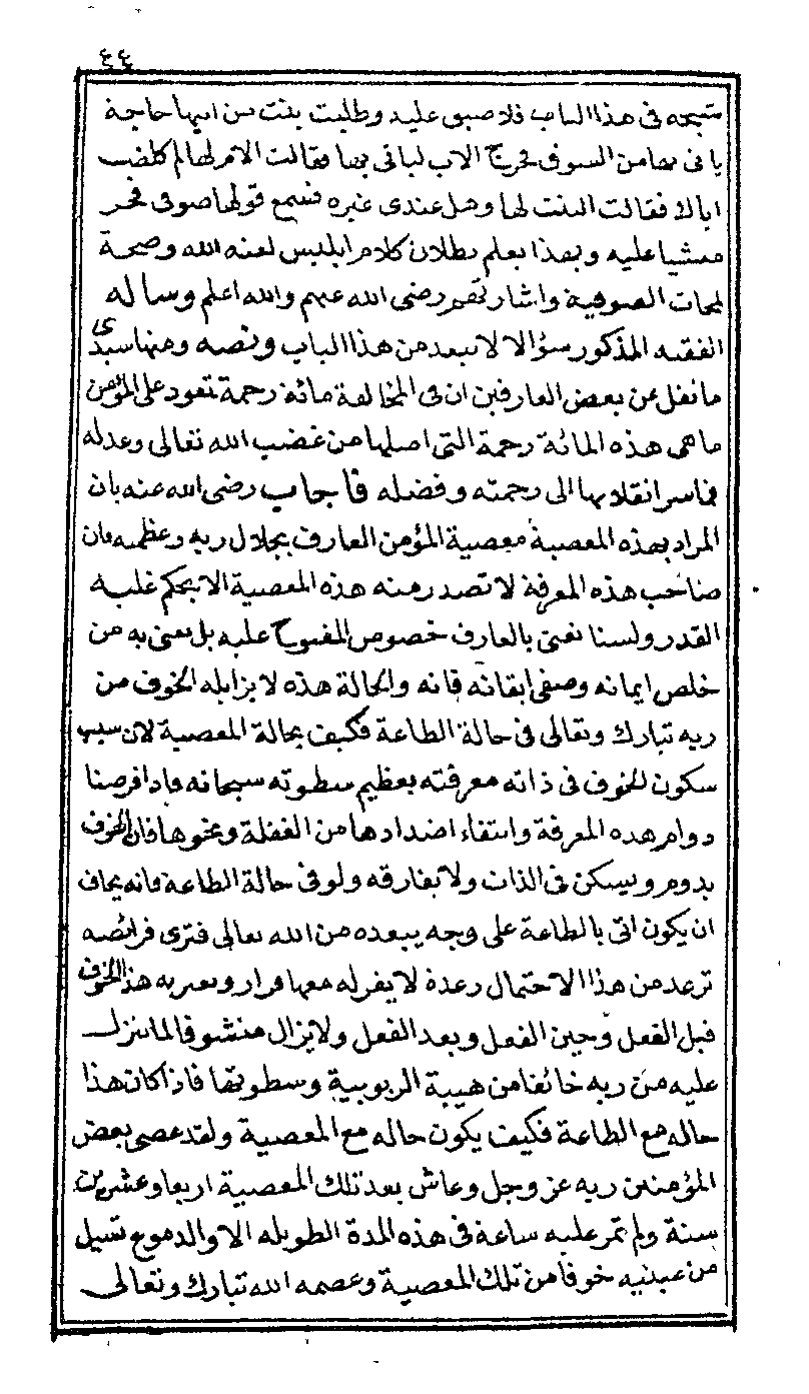 ٤٤
شيخه فى هذا الباب فلا ضيق عليه وطلبت بنت من ابيها حاجة
ياتى بها من السوق فخرج الاب لياتى بها فقالت الام لها لم كلفت
اباك فقالت البنت لها وهل عندى غيره فسمع قولها صوفى فخر
مغشيا عليه وبهذا يعلم بطلان كلام ابليس لعنه الله وصحة
لمحات الصوفية واشاراتهم رضى الله عنهم والله اعلم وساله
الفقيه المذكور سؤالا لا نبعد من هذا الباب ونصه ومنها سيدى
ما نقل عن بعض العارفين ان فى المخالفة مائة رحمة تعود على المؤمن
ما هى هذه المائة رحمة التى اصلها من غضب الله تعالى وعدله
فما سر انقلابها الى رحمته وفضله فاجاب رضى الله عنه بان
المراد بهذه المعصية معصية المؤمن العارف بجلال ربه وعظمته فان
صاحب هذه المعرفة لا تصدر منه هذه المعصية الا بحكم غلبه
القدر ولسنا نعنى بالعارف خصوص المفتوح عليه بل نعنى به من
خلص ايمانه وصفى ايقانه فانه والحالة هذه لا يزايله الخوف من
ربه تبارك وتعالى فى حالة الطاعة فكيف بحالة المعصية لان سبب
سكون الخوف فى ذاته معرفته بعظيم سطوته سبحانه فاذا فرضنا
دوام هذه المعرفة وانتفاء اضدادها من الغفلة ونحوها فان الخوف
يدوم ويسكن فى الذات ولا يفارقه ولو فى حالة الطاعة فانه يخاف
ان يكون اتى بالطاعة على وجه يبعده من الله تعالى فترى فرائصه
ترعد من هذا الاحتمال رعدة لا يقر له معها قرار ويعتريه هذا الخوف
قبل الفعل وحين الفعل وبعد الفعل ولا يزال متشوفا لما ينزل
عليه من ربه خائفا من هيبة الربوبية وسطوتها فاذا كان هذا
حاله مع الطاعة فكيف يكون حاله مع المعصية ولقد عصى بعض
المؤمنين ربه عز وجل وعاش بعد تلك المعصية اربعا وعشرين
سنة ولم تمر عليه ساعة فى هذه المدة الطويله الا والدموع تسيل
من عينيه خوفا من تلك المعصية وعصمه الله تبارك وتعالى